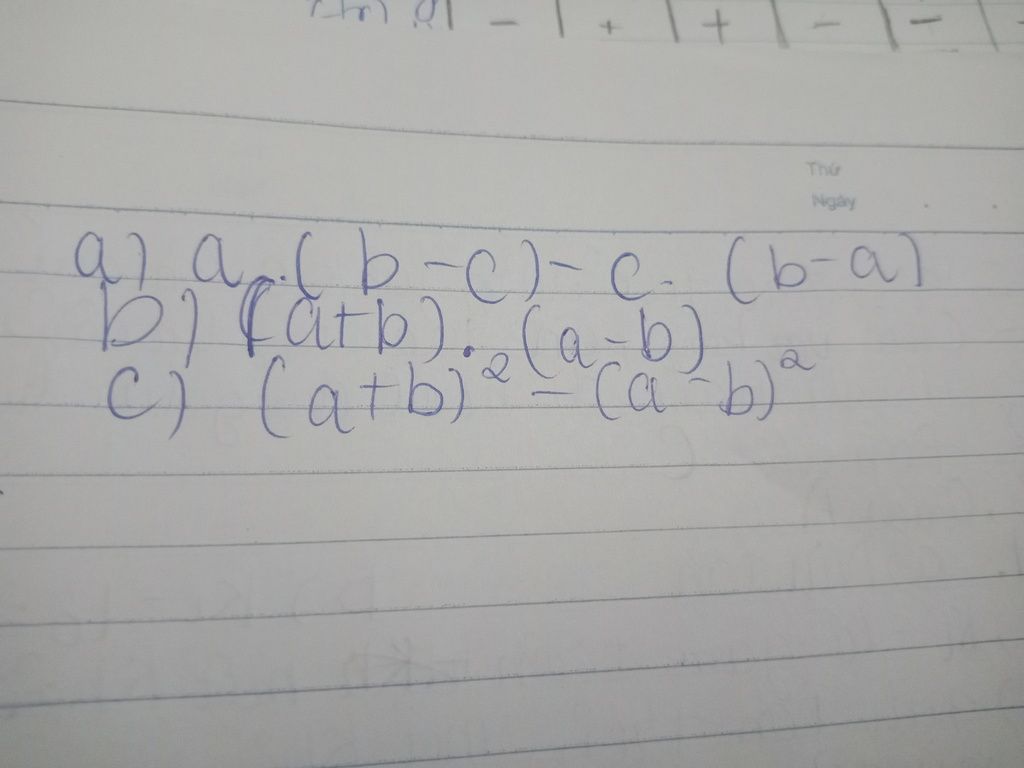 - | + | + | - | - |
Thứ
Ngày
a) a.(b-c)-c.(b-a)
b) (a+b).(a-b)
c) (a+b)² -(a-b)²